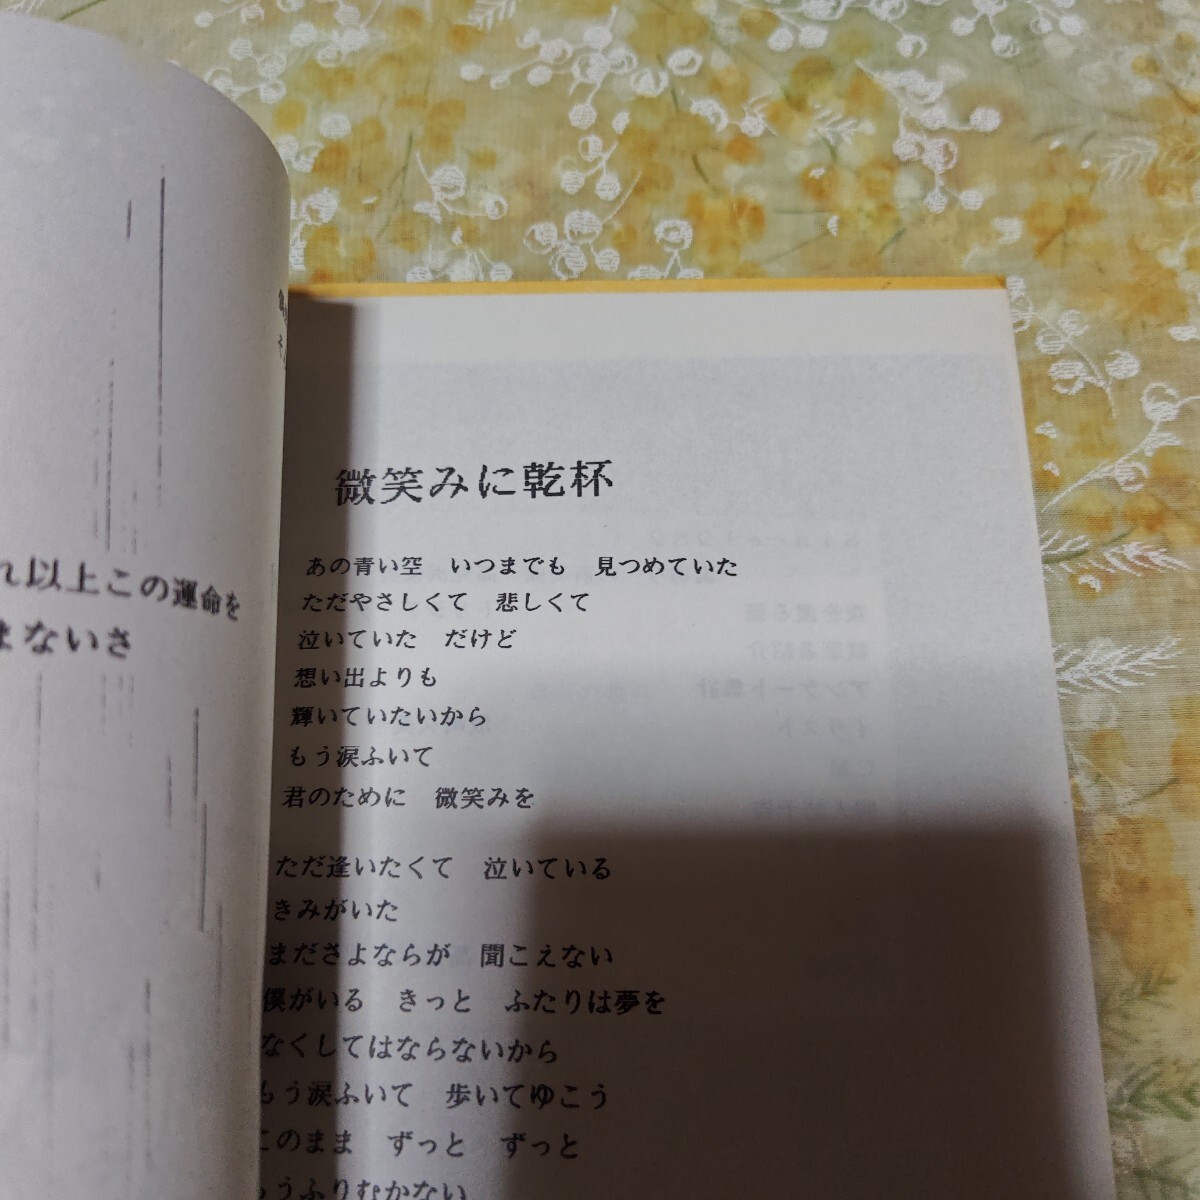 れ以上この運命を
まないさ
微笑みに乾杯
あの青い空 いつまでも 見つめていた
ただやさしくて 悲しくて
泣いていた だけど
想い出よりも
輝いていたいから
もう涙ふいて
君のために 微笑みを
ただ逢いたくて 泣いている
きみがいた
まださよならが 聞こえない
僕がいる きっと ふたりは夢を
なくしてはならないから
もう涙ふいて 歩いてゆこう
このまま ずっと ずっと
もうふりむかない